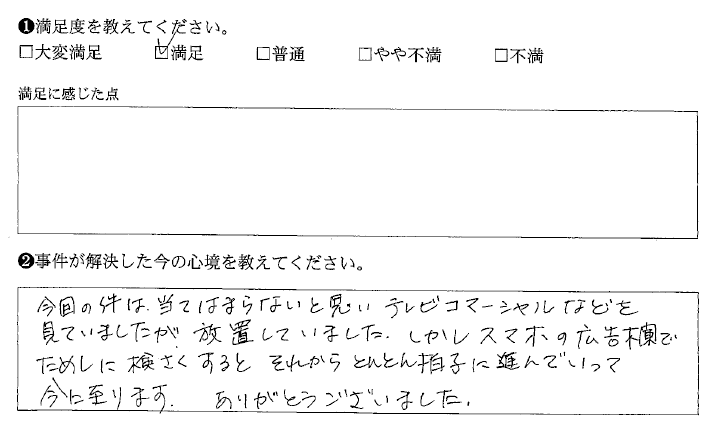 ❶満足度を教えてください。
□大変満足 ☑満足 □普通 □やや不満 □不満
満足に感じた点
❷事件が解決した今の心境を教えてください。
今回の件は、当てはまらないと思い テレビコマーシャルなどを
見ていましたが、放置していました。しかしスマホの広告欄で
ためしに検さくすると それからとんとん拍子に進んでいって
今に至ります。 ありがとうございました。